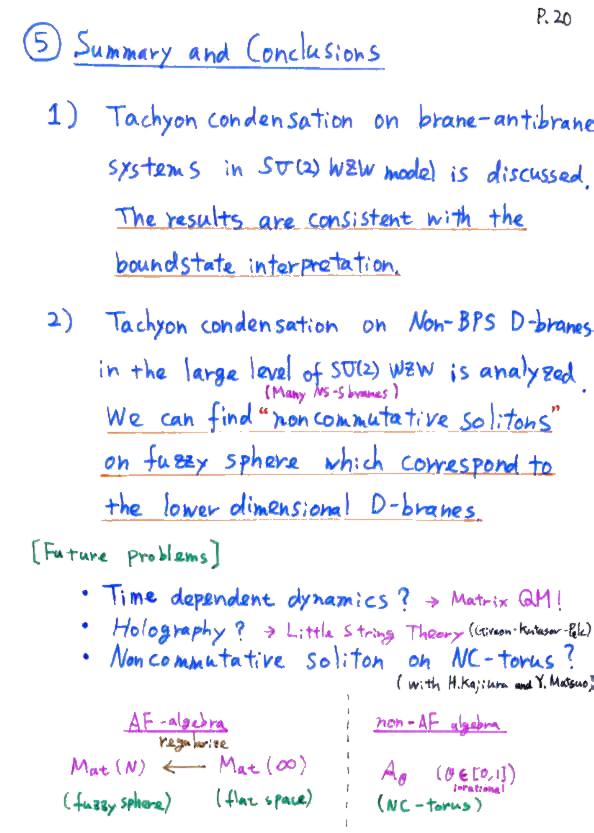 P.20
⑤ Summary and Conclusions
1) Tachyon condensation on brane-antibrane
systems in SU(2) WZW model is discussed.
The results are consistent with the
boundstate interpretation.
2) Tachyon condensation on Non-BPS D-branes
in the large level of SU(2) WZW is analyzed.
(Many NS-5branes)
We can find "noncommutative solitons"
on fuzzy sphere which correspond to
the lower dimensional D-branes.
[Future problems]
• Time dependent dynamics? → Matrix QM!
• Holography? → Little String Theory (Giveon-Kutasov-Pelc)
• Noncommutative soliton on NC-torus?
(with H.Kajiura and Y.Matsuo)
AF-algebra
regularize
Mat(N) ← Mat(∞)
(fuzzy sphere) (flat space)
non-AF algebra
Aθ (θ∈[0,1])
irrational
(NC-torus)